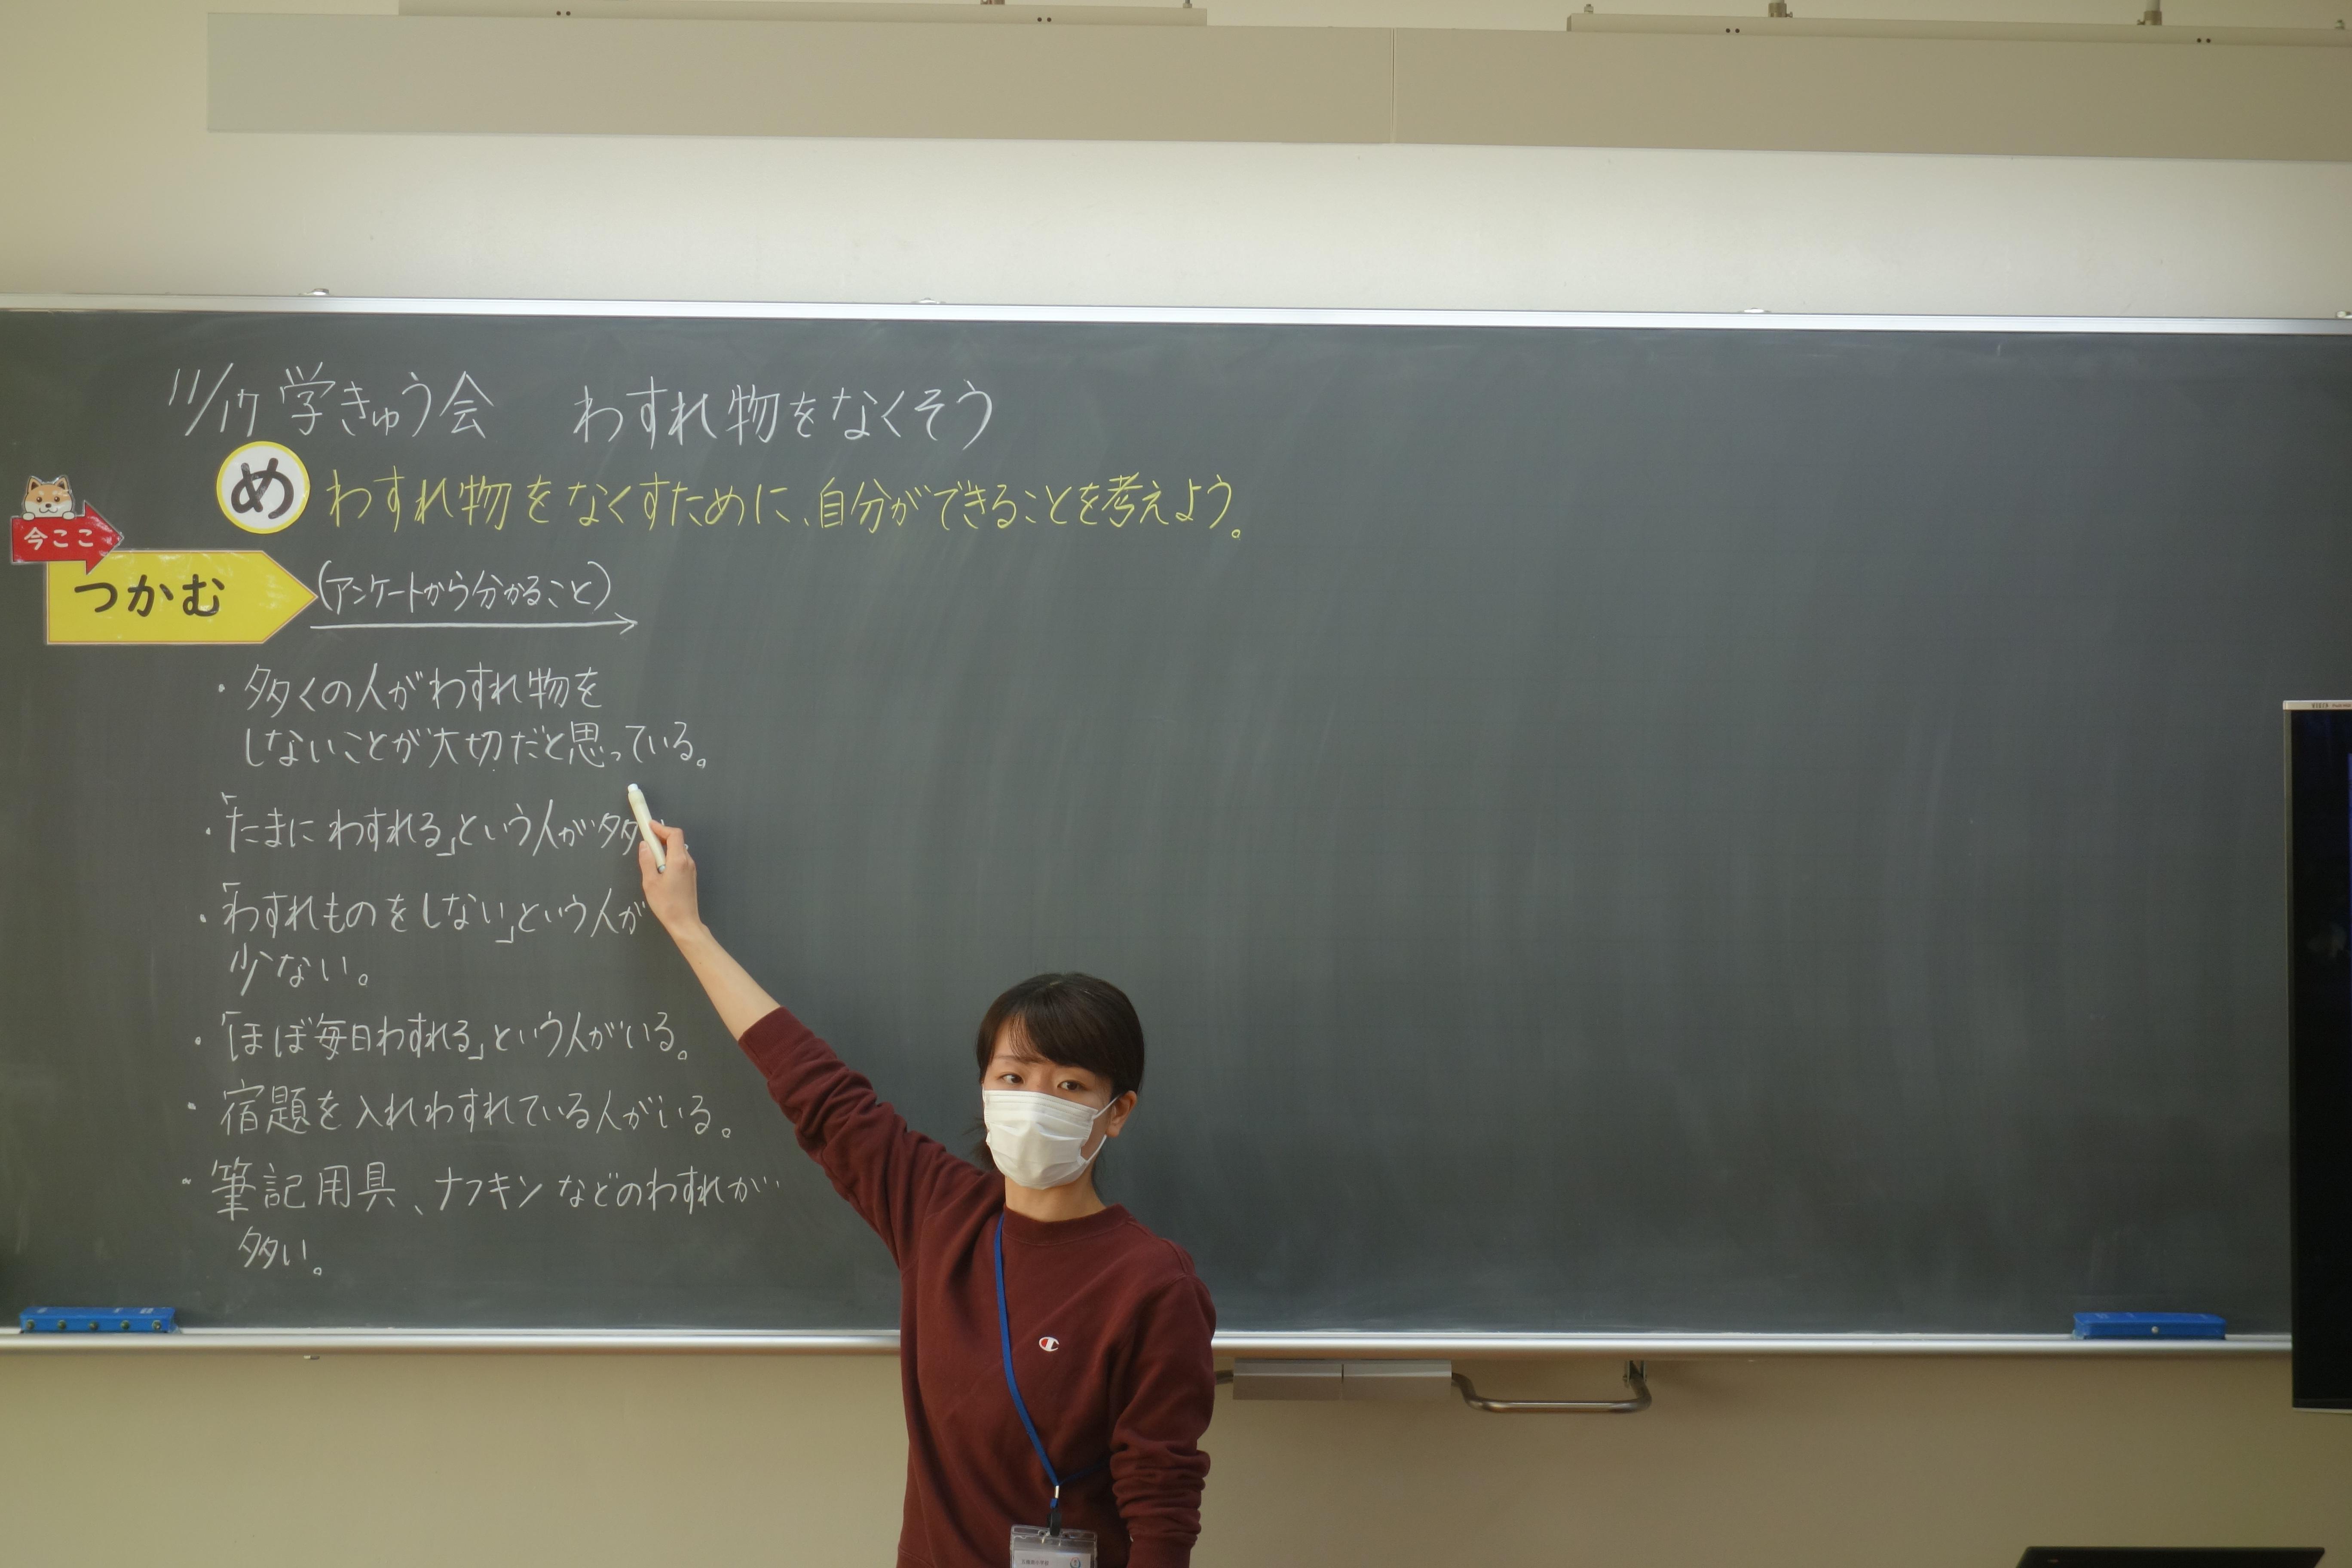 11/17 学きゅう会 わすれ物をなくそう
め わすれ物をなくすために、自分ができることを考えよう。
今ここ
つかむ (アンケートから分かること)
・多くの人がわすれ物を
しないことが大切だと思っている。
・「たまにわすれる」という人が多
・「わすれものをしない」という人が
少ない。
・「ほぼ毎日わすれる」という人がいる。
・宿題を入れわすれている人がいる。
・筆記用具、ナフキンなどのわすれが
多い。